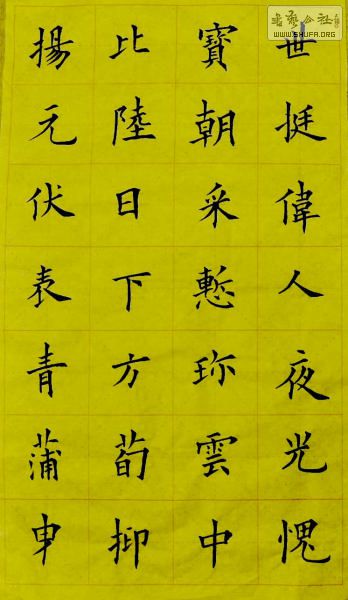 世挺偉人夜光愧
寶朝采慙珎雲中
比陸日下方荀抑
揚元伏表青蒲申
書藝公社
WWW.SHUFA.ORG